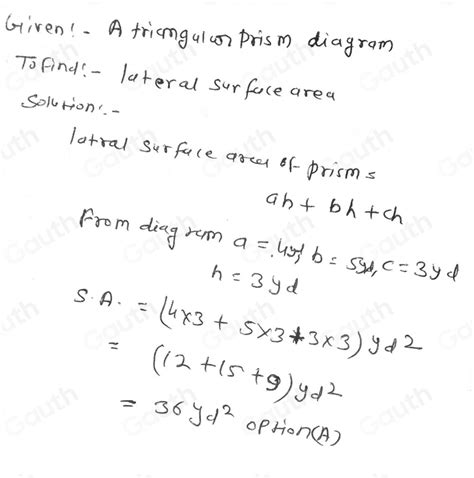 Given:- A triangular Prism diagram
To find:- lateral surface area
Solution:-
latral surface area of prism =
ah + bh + ch
From diagram a = 4yd b = 5yd, c = 3yd
h = 3yd
S.A. = (4x3 + 5x3+3x3) yd2
= (12 +15 +9) yd2
= 36 yd2 option(A)
Gauth